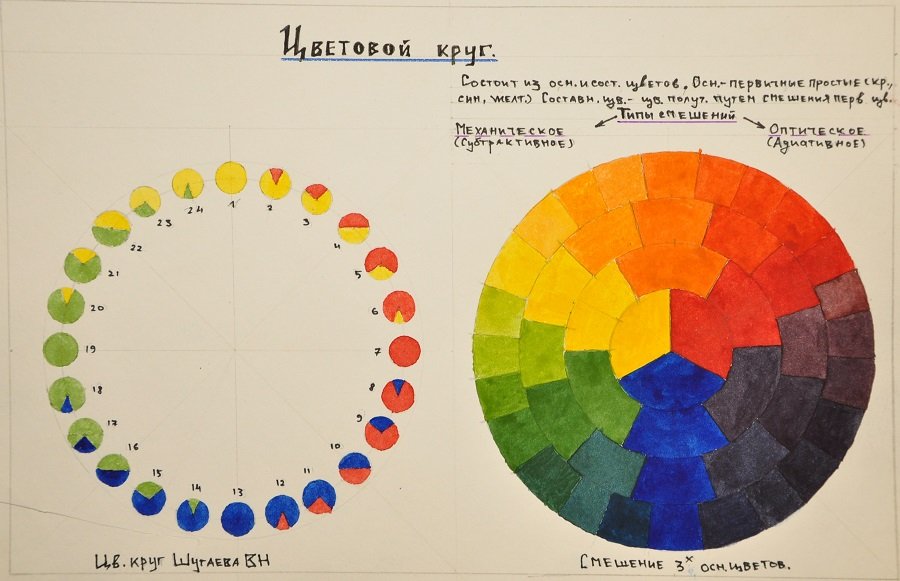 Цветовой круг.
Состоит из осн. и сост. цветов. Осн.- первичные простые (кр.,
син, желт.) Составн. цв.- цв. получ. путем смешения перв. цв.
Типы смешений
Механическое Оптическое
(Субтрактивное) (Адиативное)
1
2
3
4
5
6
7
8
9
10
11
12
13
14
15
16
17
18
19
20
21
22
23
24
Цв. круг Шугаева ВН
Смешение 3х осн. цветов.